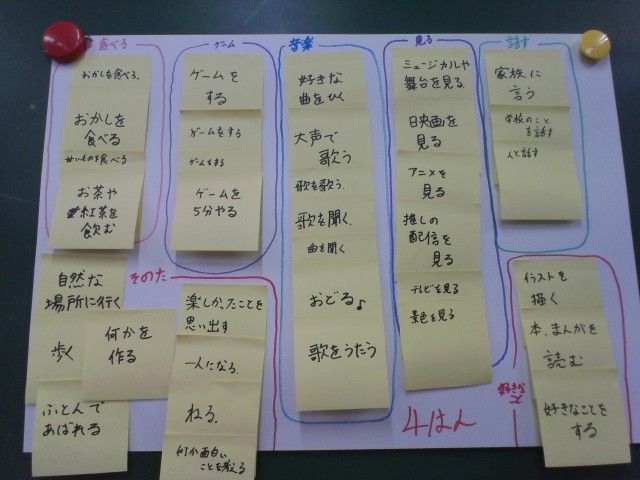 食べる
おかしを食べる。
おかしを
食べる
甘いものを食べる
お茶や
紅茶を
飲む
ゲーム
ゲームを
する
ゲームをする
ゲームする
ゲームを
5分やる
音楽
好きな
曲をひく
大声で
歌う
歌を歌う。
歌を聞く。
曲を聞く
おどる♪
歌をうたう
見る
ミュージカルや
舞台を見る。
映画を
見る
アニメを
見る
推しの
配信を
見る
テレビを見る
景色を見る
話す
家族に
言う
学校のこと
を話す
人と話す
そのた
自然な
場所に行く
歩く
何かを
作る
ふとんで
あばれる
楽しかったことを
思い出す
一人になる。
ねる。
何か面白い
ことを考える
好きな
こと
イラストを
描く
本、まんがを
読む
好きなことを
する
4はん